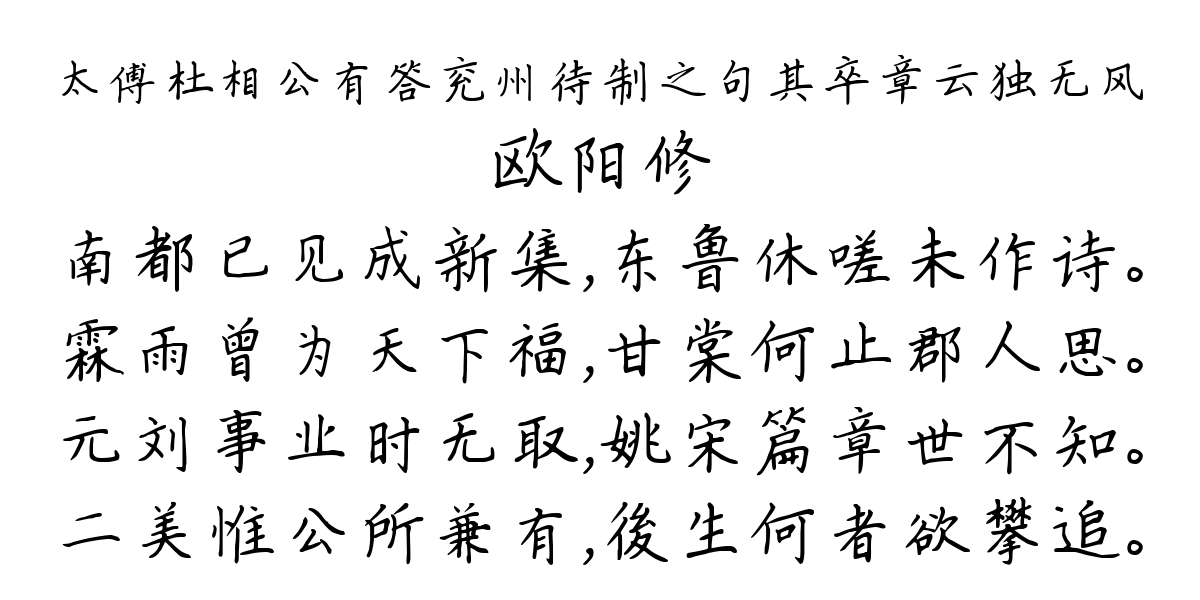 太傅杜相公有答兖州待制之句其卒章云独无风
欧阳修
南都已见成新集,东鲁休嗟未作诗。
霖雨曾为天下福,甘棠何止郡人思。
元刘事业时无取,姚宋篇章世不知。
二美惟公所兼有,後生何者欲攀追。